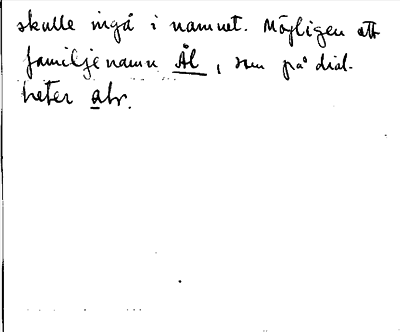 skulle ingå i namnet. Möjligen ett
familjenamn Ål, som på dial.
heter